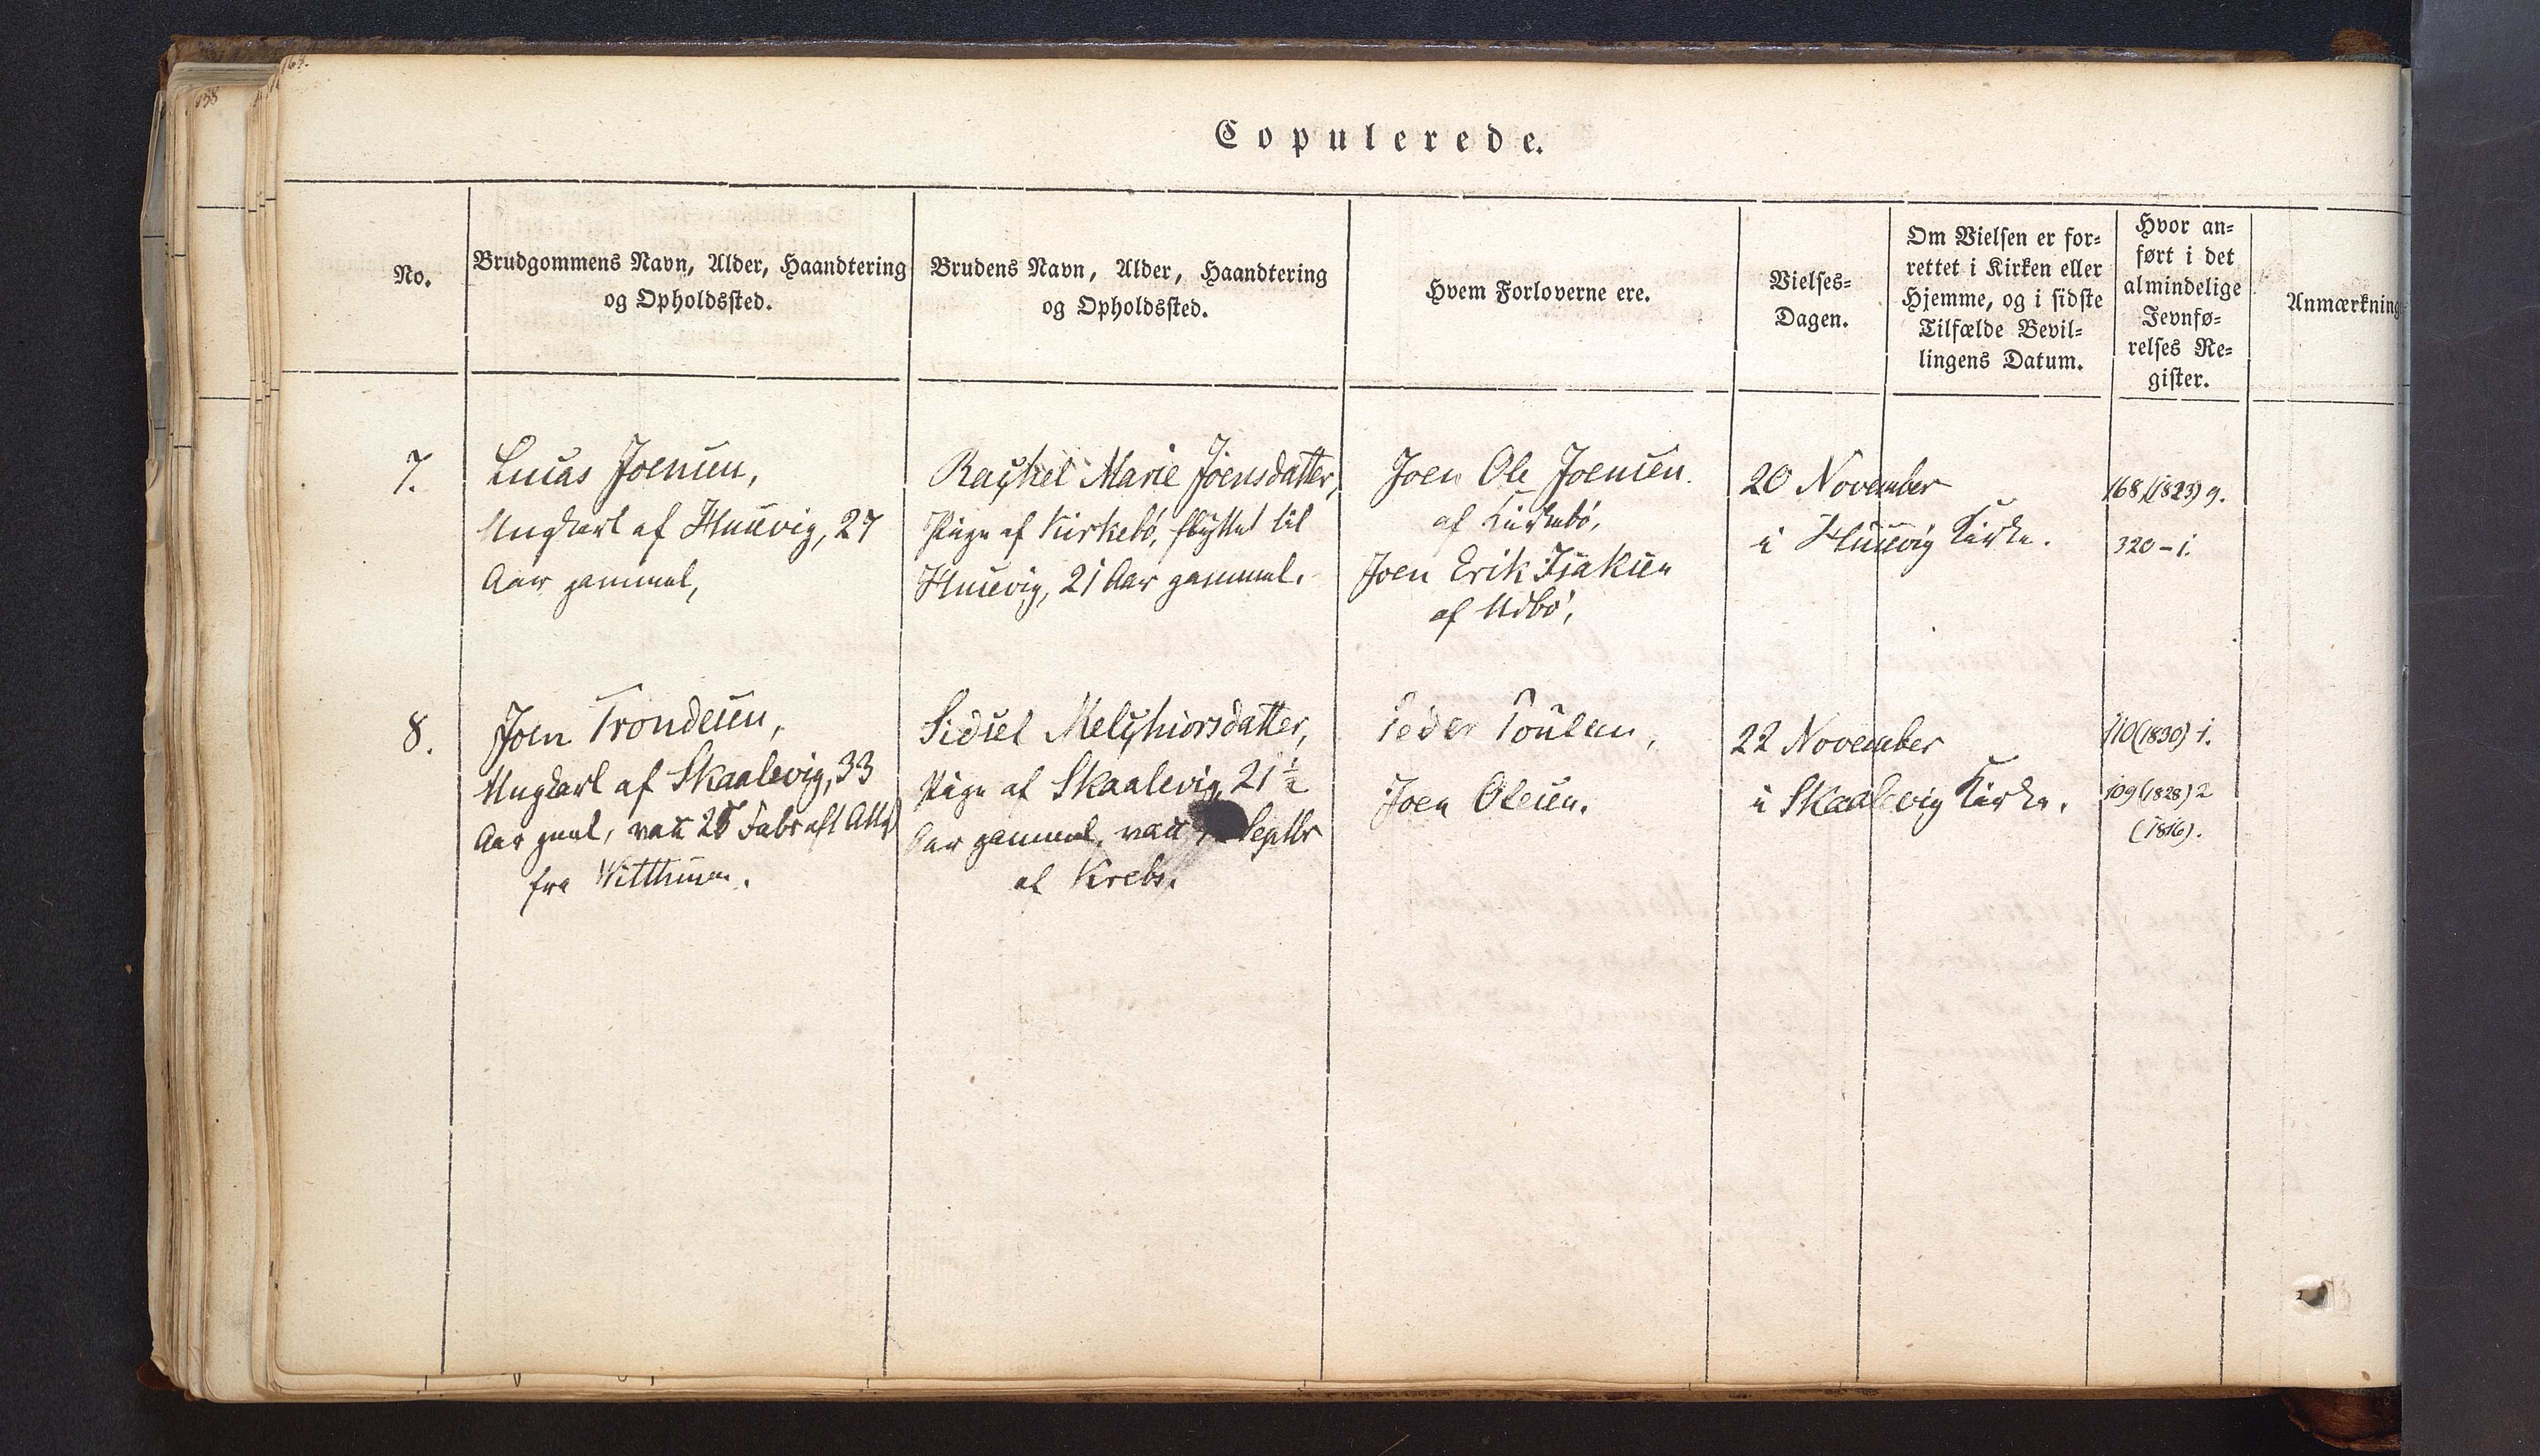 164.
158
Copulerede.
No.
Brudgommens Navn, Alder, Haandtering
og Opholdssted.
Brudens Navn, Alder, Haandtering
og Opholdssted.
Hvem Forloverne ere.
Vielses-
Dagen.
Om Vielsen er for-
rettet i Kirken eller
Hjemme, og i sidste
Tilfælde Bevil-
lingens Datum.
Hvor an-
ført i det
almindelige
Jevnfø-
relses Re-
gister.
Anmærkning
7.
Lucas Joensen,
Ungkarl af Husevig, 27
Aar gammel,
Rachel Marie Joensdatter,
Pige af Kirkebö, flyttet til
Husevig, 21 Aar gammel.
Joen Ole Joensen.
af Kirkebö,
Joen Erik Isaksen
af Udbö,
20 November
i Husevig Kirke.
168,(1823) 9.
320 - 1.
8.
Joen Trondesen,
Ungkarl af Skaalevig, 33
Aar gml, vacc 25 Febr
fra
Sidsel Melchiorsdatter,
Pige af Skaalevig, 21 ½
Aar gammel, vacc Septbr
af Krebs.
Peder Poulsen,
Joen Olesen.
22 November
i Skaalevig Kirke.
110(1830) 1.
109(1828) 2
(1816).